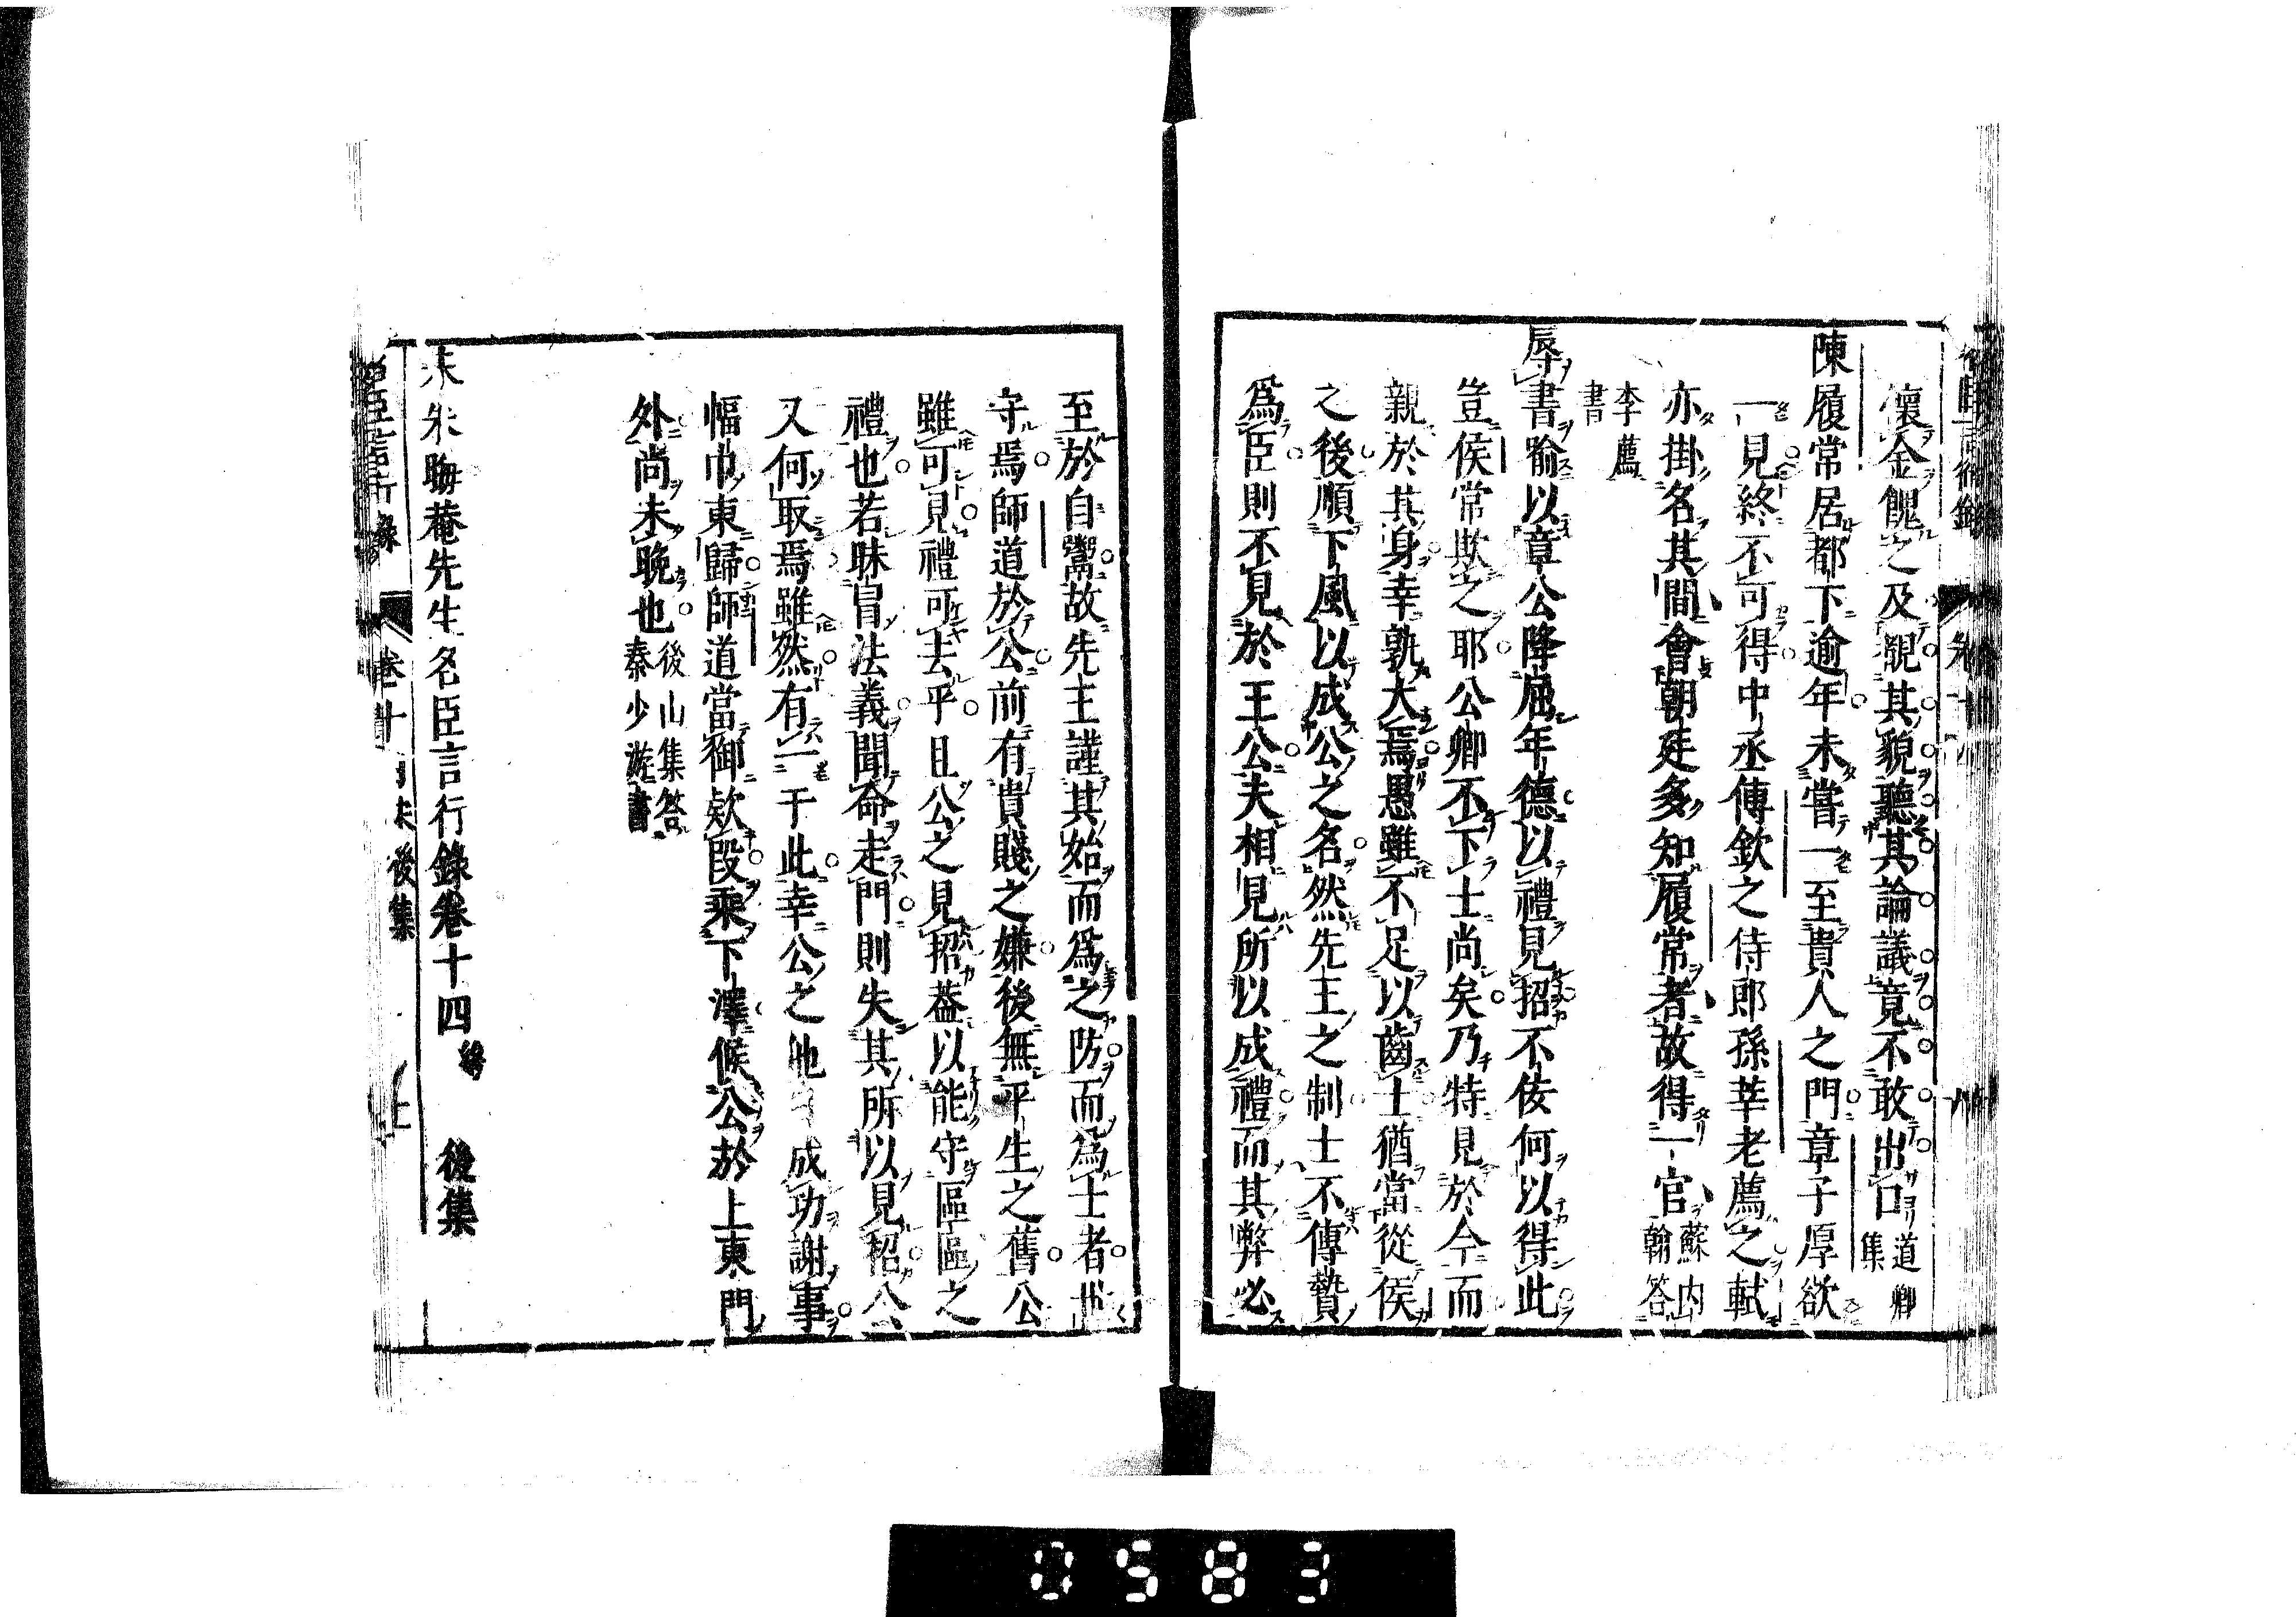 懷金餽之及覩其貌聽其論議竟不敢出口道卿集
陳履常居都下逾年未嘗一至貴人之門章子厚欲
一見終不可得中丞傅欽之侍郎孫莘老薦之軾
亦掛名其間會朝廷多知履常者故得一官蘇內翰答
李薦書
辱書喻以章公降屈年德以禮見招不佞何以得此
豈侯常欺之耶公卿不下士尚矣乃特見於今而
親於其身幸孰大焉愚雖不足以齒士猶當從侯
之後順下風以成公之名然先王之制士不傳贄
爲臣則不見於王公夫相見所以成禮而其弊必
至於自鬻故先王謹其始而爲之防而爲士者世
守焉師道於公前有貴賤之嫌後無平生之舊公
雖可見禮可去乎且公之見招葢以能守區區之
禮也若昧冒法義聞命走門則失其所以見招公
又何取焉雖然有一于此幸公之他日成功謝事
幅巾東歸師道當御欵段乘下澤候公於上東門
外尚未晚也後山集答秦少游書
宋朱晦菴先生名臣言行錄卷十四終 後集
名臣言行錄 卷十四 後集
0583